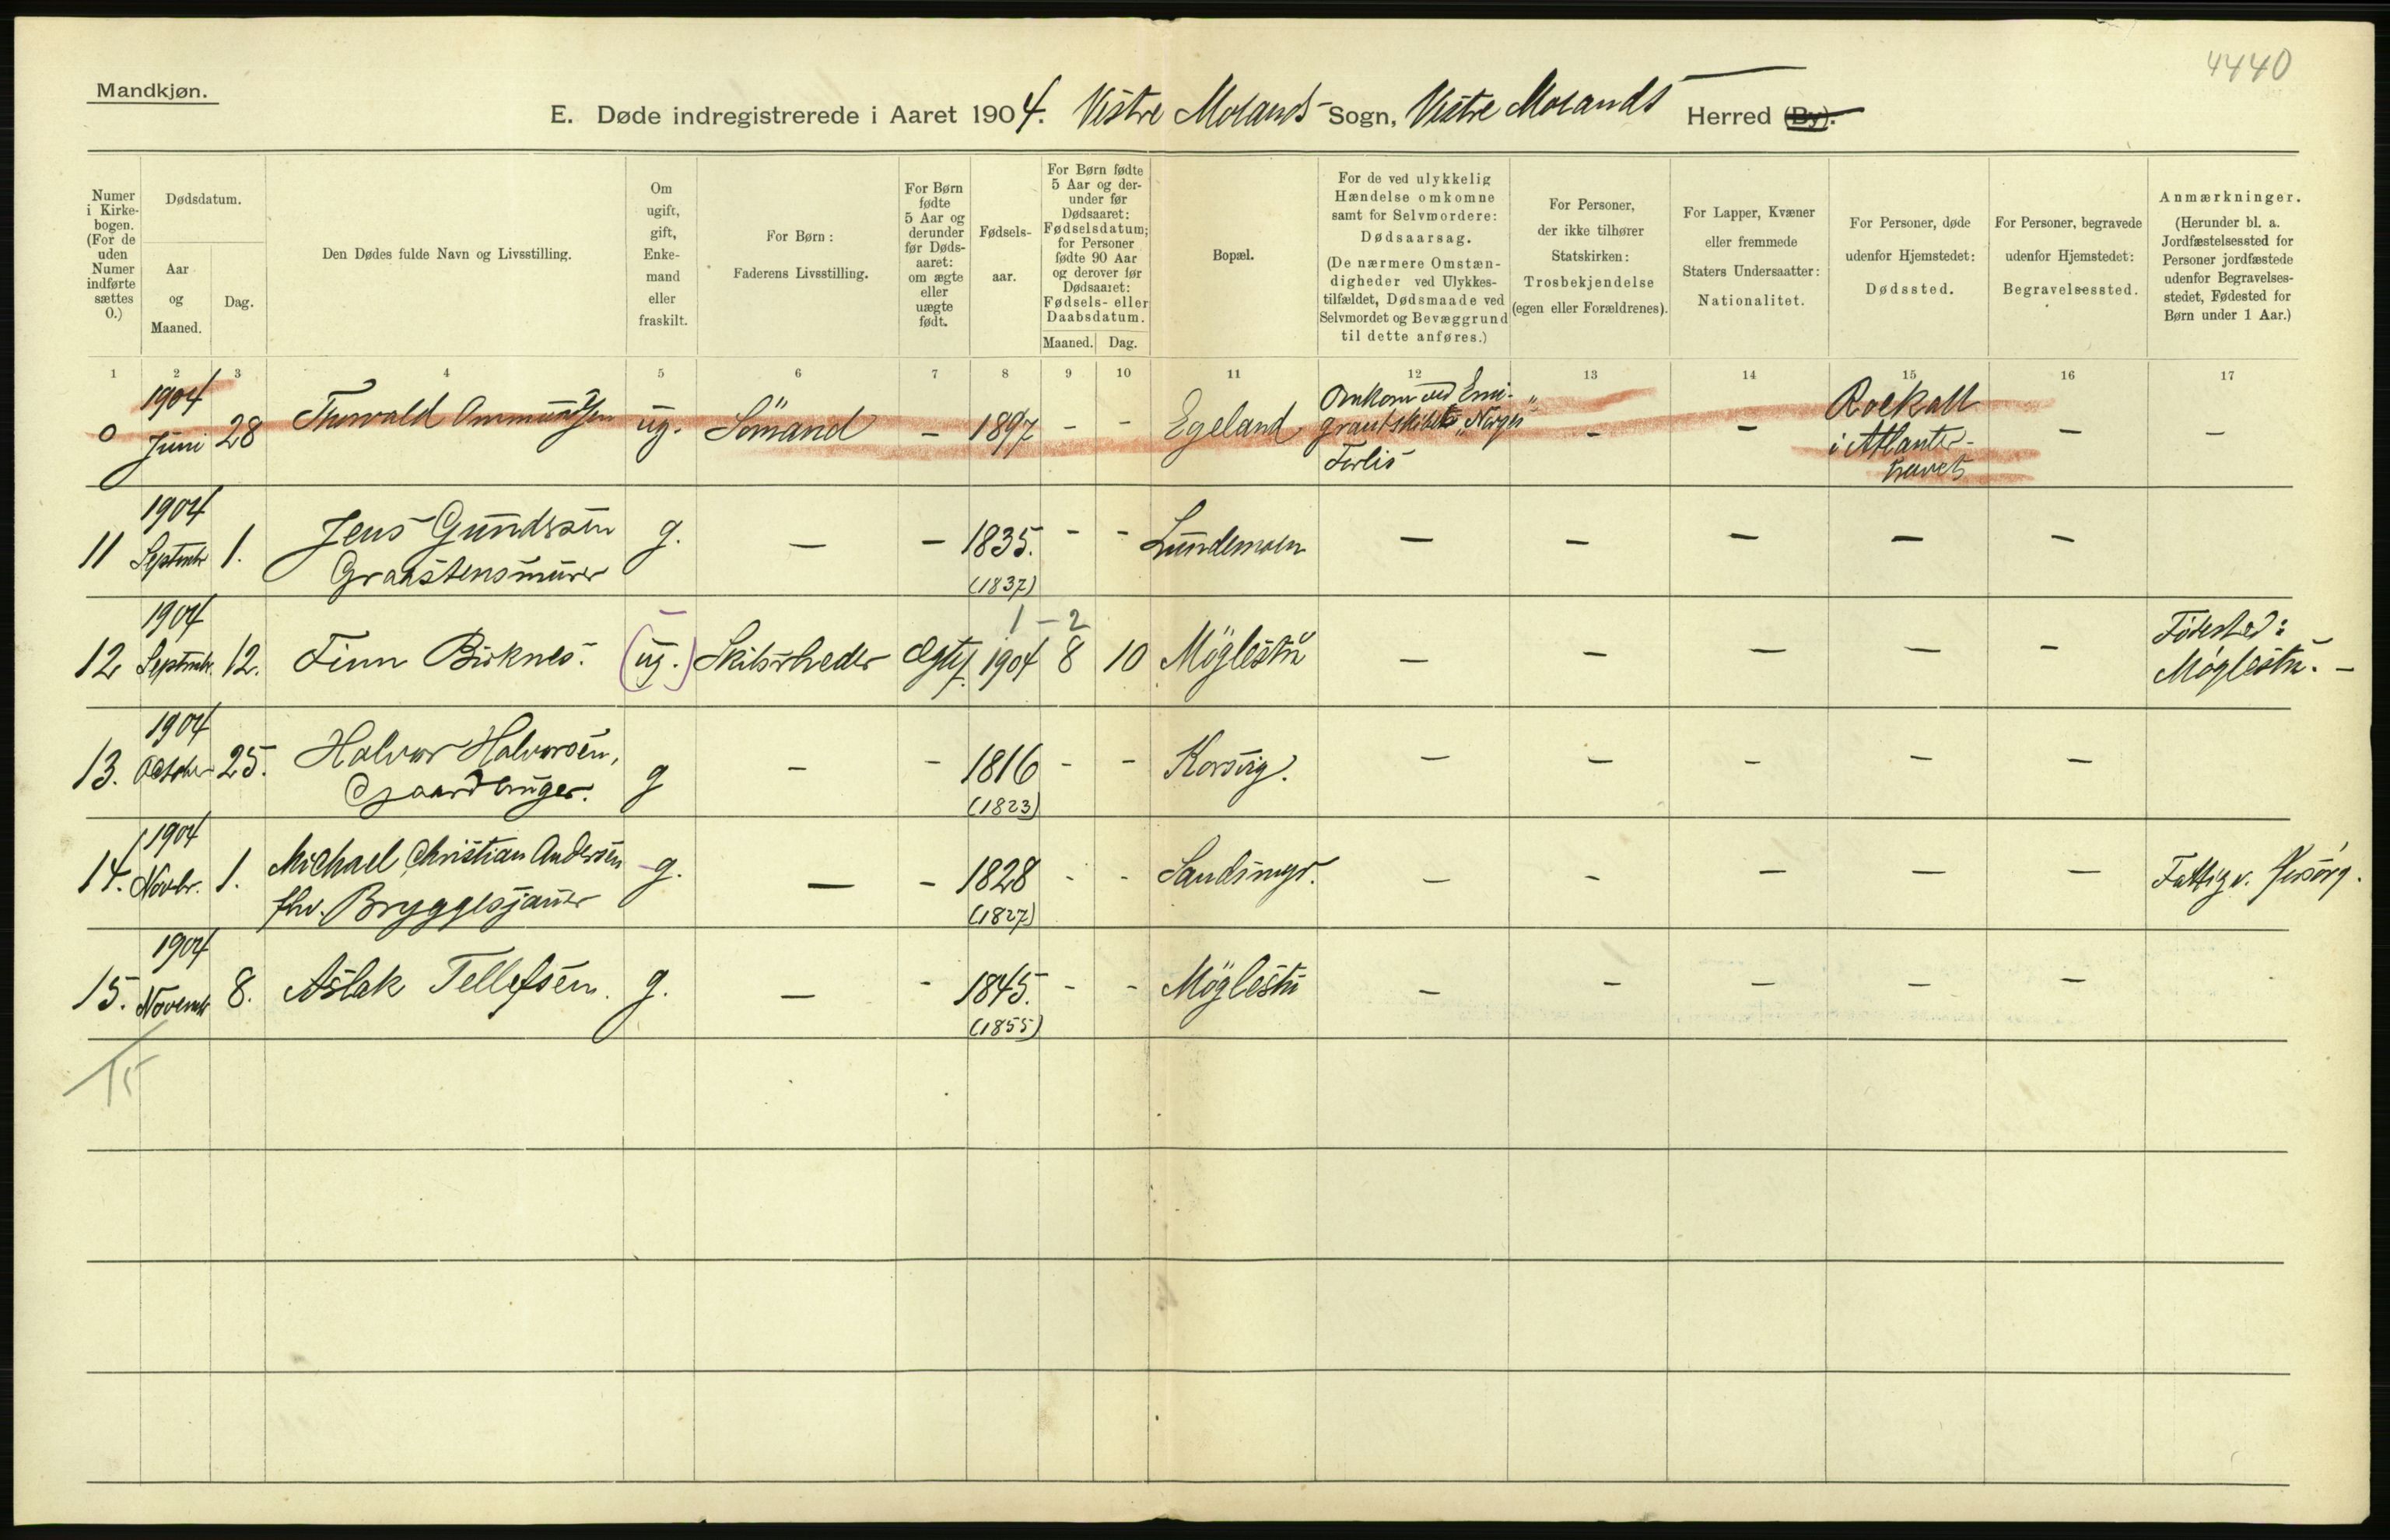 4440
Mandkjøn.
E. Døde indregistrerede i Aaret 1904. Vestre Molands Sogn, Vestre Molands Herred (By).
Numer i Kirke-bogen. (For de uden Numer indførte sættes 0.)
Dødsdatum.
Aar og Maaned.
Dag.
Den Dødes fulde Navn og Livsstilling.
Om ugift, gift, Enke-mand eller fraskilt.
For Børn: Faderens Livsstilling.
For Børn fødte 5 Aar og derunder før Døds-aaret: om ægte eller uægte født.
Fødsels-aar.
For Børn fødte 5 Aar og der-under før Dødsaaret: Fødselsdatum; for Personer fødte 90 Aar og derover før Dødsaaret: Fødsels- eller Daabsdatum.
Maaned. Dag.
Bopæl.
For de ved ulykkelig Hændelse omkomne samt for Selvmordere: Dødsaarsag. (De nærmere Omstæn-digheder ved Ulykkes-tilfældet, Dødsmaade ved Selvmordet og Bevæggrund til dette anføres.)
For Personer, der ikke tilhører Statskirken: Trosbekjendelse (egen eller Forældrenes).
For Lapper, Kvæner eller fremmede Staters Undersaatter: Nationalitet.
For Personer, døde udenfor Hjemstedet: Dødssted.
For Personer, begravede udenfor Hjemstedet: Begravelsessted.
Anmærkninger. (Herunder bl. a. Jordfæstelsessted for Personer jordfæstede udenfor Begravelses-stedet, Fødested for Børn under 1 Aar.)
1 2 3 4 5 6 7 8 9 10 11 12 13 14 15 16 17
0 1904 Juni 28 Thorvald Ommundsen ug. Sömand - 1897 - - Egeland Omkom ved Emi-grantskibets "Norges" Forlis - - Rockall i Atlanter-havet - -
11 1904 Septembr 1. Jens Gundersen Graastensmurer g. - - 1835. (1837) - - Lundemoen - - - - -
12 1904 Septembr. 12. Finn Birknes. (ug.) Skibsrheder Ægte f. 1904 1 - 2 8 10 Möglestu - - - - - Födested: Möglestu. -
13. 1904 October 25. Halvor Halvorsen, Gaardbruger. g - - 1816 (1823) - - Korsvig. - - - - -
14. 1904 Novbr. 1. Michael Christian Andersen fhv. Bryggesjauer g. - - 1828 (1827) - - Sandsmyr. - - - - - Fattigv. Forsörg.
15. 1904 Novembr 8. Aslak Tellefsen. g. - - 1845. (1855) - - Möglestu - - - - -
15